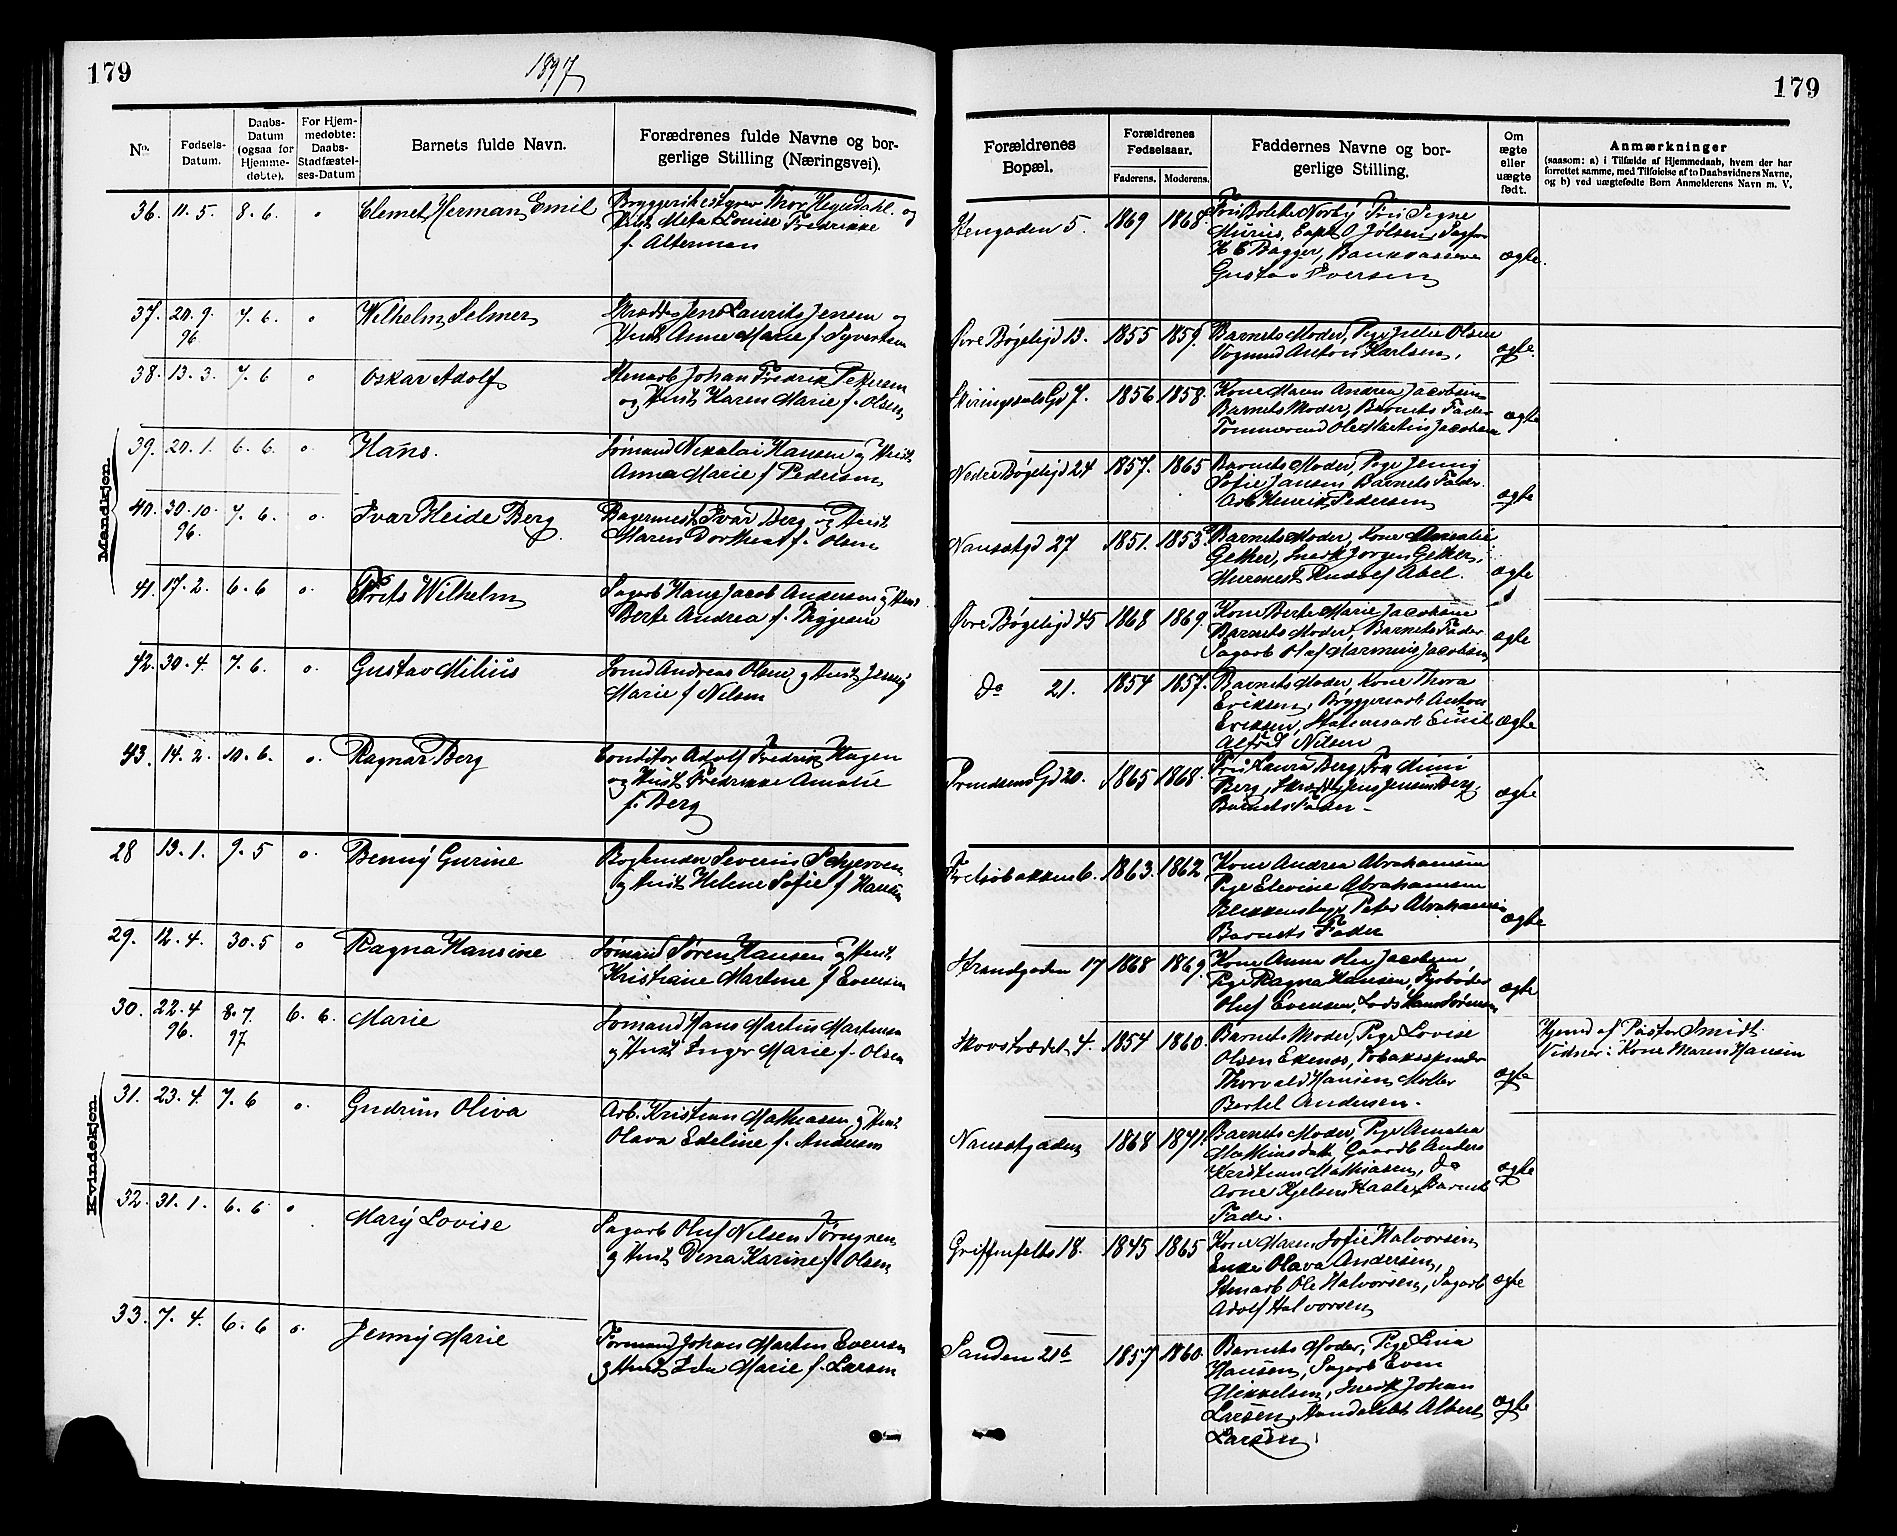 179
1897
179
No.
Fødsels-
Datum.
Daabs-
Datum
(ogsaa for
Hjemme-
døbte).
For Hjem-
medøbte:
Daabs-
Stadfæstel-
ses-Datum
Barnets fulde Navn.
Forædrenes fulde Navne og bor-
gerlige Stilling (Næringsvei).
Forældrenes
Bopæl.
Forældrenes
Fødselsaar.
Faderens. Moderens.
Faddernes Navne og bor-
gerlige Stilling.
Om
ægte
eller
uægte
født.
Anmærkninger
(saasom: a) i Tilfælde af Hjemmedaab, hvem der har
forrettet samme, med Tilføielse af to Daabsvidners Navne,
og b) ved uægtefødte Børn Anmelderens Navn m. V.
Mandkjøn.
36. 11. 5. 8. 6. o Clemet Herman Emil
Bryggeribestyrer Thor Heyerdahl og
Hust Meta Lovise Fredrikke
f. Alterman
5. 1869 1868.
Gustav Iversen
ægte.
37. 20. 9. 7. 6. o Wilhelm Selmer
96.
Jens Laurits Jensen og
Hust Anne Marie f. Syvertsen
Øvre Bøgeligd 13. 1855 1859. Barnets Moder, Pige Olsen
Vognmd Anton Karlsen,
ægte.
38. 13. 3. 7. 6 o Oskar Adolf
Stenarb Johan Fredrik Pettersen
og Hust Karen Marie f. Olsen
Skiringssals Gd 7. 1856 1858. Kone Maren Andrea Jacobsen
Barnets Moder, Barnets Fader
Tømmermd Ole Martin Jacobsen
ægte
39. 20. 1. 6. 6. o. Hans.
Sømand Nikolai Hansen og Hust
Anna Marie f Pedersen
Nedre Bøgeligd 24 1857. 1865 Barnets Moder, Pige Jenny
Sofie Jansen Barnets Fader.
Arb Henrik Pedersen
ægte
40. 30. 10. 7. 6. o. Ivar Heide Berg
96.
Bagermest Ivar Berg og Hust
Maren Dorthea f. Olsen
Nansetgd 27 1851. 1853. Barnets Moder, Kone Amalie
Gether, Snedk Jørgen Gether,
Murmest Rudolf Abel.
ægte
41. 17. 2. 6. 6 o. Frits Wilhelm
Sagarb Hans Jacob Andersen og Hust
Berte Andrea f.
Øvre Bøgeligd 45 1868 1869. Kone Berte Marie Jacobsen
Barnets Moder, Barnets Fader
Sagarb Olaf Jacobsen
ægte
42. 30. 4. 7. 6. o. Gustav Milius
Sømd Andreas Olsen og Hust Jenny
Marie f Nilsen
do 21. 1854 1857. Barnets Moder, Kone Thora
Eriksen, Bryggeriarb Anton
Eriksen, Emil
Alfred Nilsen
ægte
43. 14. 2. 10. 6. o. Ragnar Berg
Conditor Adolf Fredrik Hagen
og Hust Fredrikke Amalie
f. Berg
Gd 20. 1865 1868. Laura Berg, Mimi
Berg, Jens Jensen Berg,
Barnets Fader.
ægte
Kvindekjøn.
28 13. 1. 9. 5 o. Benny Gurine
Bogbinder Severin Schjerven
og Hust Helene Sofie f Hansen
6. 1863. 1862 Kone Andrea Abrahamsen
Pige Elevine Abrahamsen
Peter Abrahamsen
Barnets Fader
ægte
29. 12. 4. 30. 5 o Ragna Hansine
Sømand Søren Hansen og Hust
Kristiane Martine f Evensen
Strandgaden 17 1868 1869. Kone Anne Jacobsen,
Pige Ragna Hansen, Fyrbøder
Oluf Evensen, Lods
ægte
30. 22. 4 8. 7. 6. 6. Marie
96. 97
Sømand Hans Martin Martinsen
og Hust Inger Marie f. Olsen
4. 1854 1860. Barnets Moder, Pige Lovise
Olsen Ekenæs, Tobaksspinder
Thorvald Hansen, Møller
Bertel Andersen.
ægte
Hjemd af Pastor Smidt.
Vidner: Kone Maren Hansen
31. 23. 4. 7. 6 o. Gudrun Oliva
Arb. Kristian Mathiasen og Hust
Olava Edeline f. Andersen
Nansetgaden 1868 1871. Barnets Moder, Pige Amalia
Gaardb Anders
Kristian Mathiasen, do
Arne Kjelsen Barnets
Fader.
ægte
32. 31. 1. 6. 6 o Mary Lovise
Sagarb Oluf Nilsen
og Hust Dina Karine f Olsen
Griffenfelts 18. 1845 1865 Kone Maren Sofie Halvorsen
Enke Olava Andersen,
Stenarb Ole Halvorsen, Sagarb
Adolf Halvorsen
ægte
33. 7. 4. 6. 6 o. Jenny Marie
Formand Johan Martin Evensen
og Hust Marie f. Larsen
Sanden 21b 1857 1860. Barnets Moder, Pige Lina
Hansen, Sagarb Even
Mikkelsen, Snedk Johan
Larsen, Albert
Larsen.
ægte